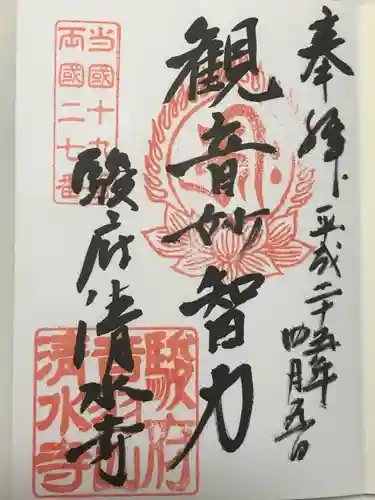 奉拝
平成二十五年
四月五日
観音妙智力
駿府清水寺
当國十九
両國二七番
駿府
清水寺